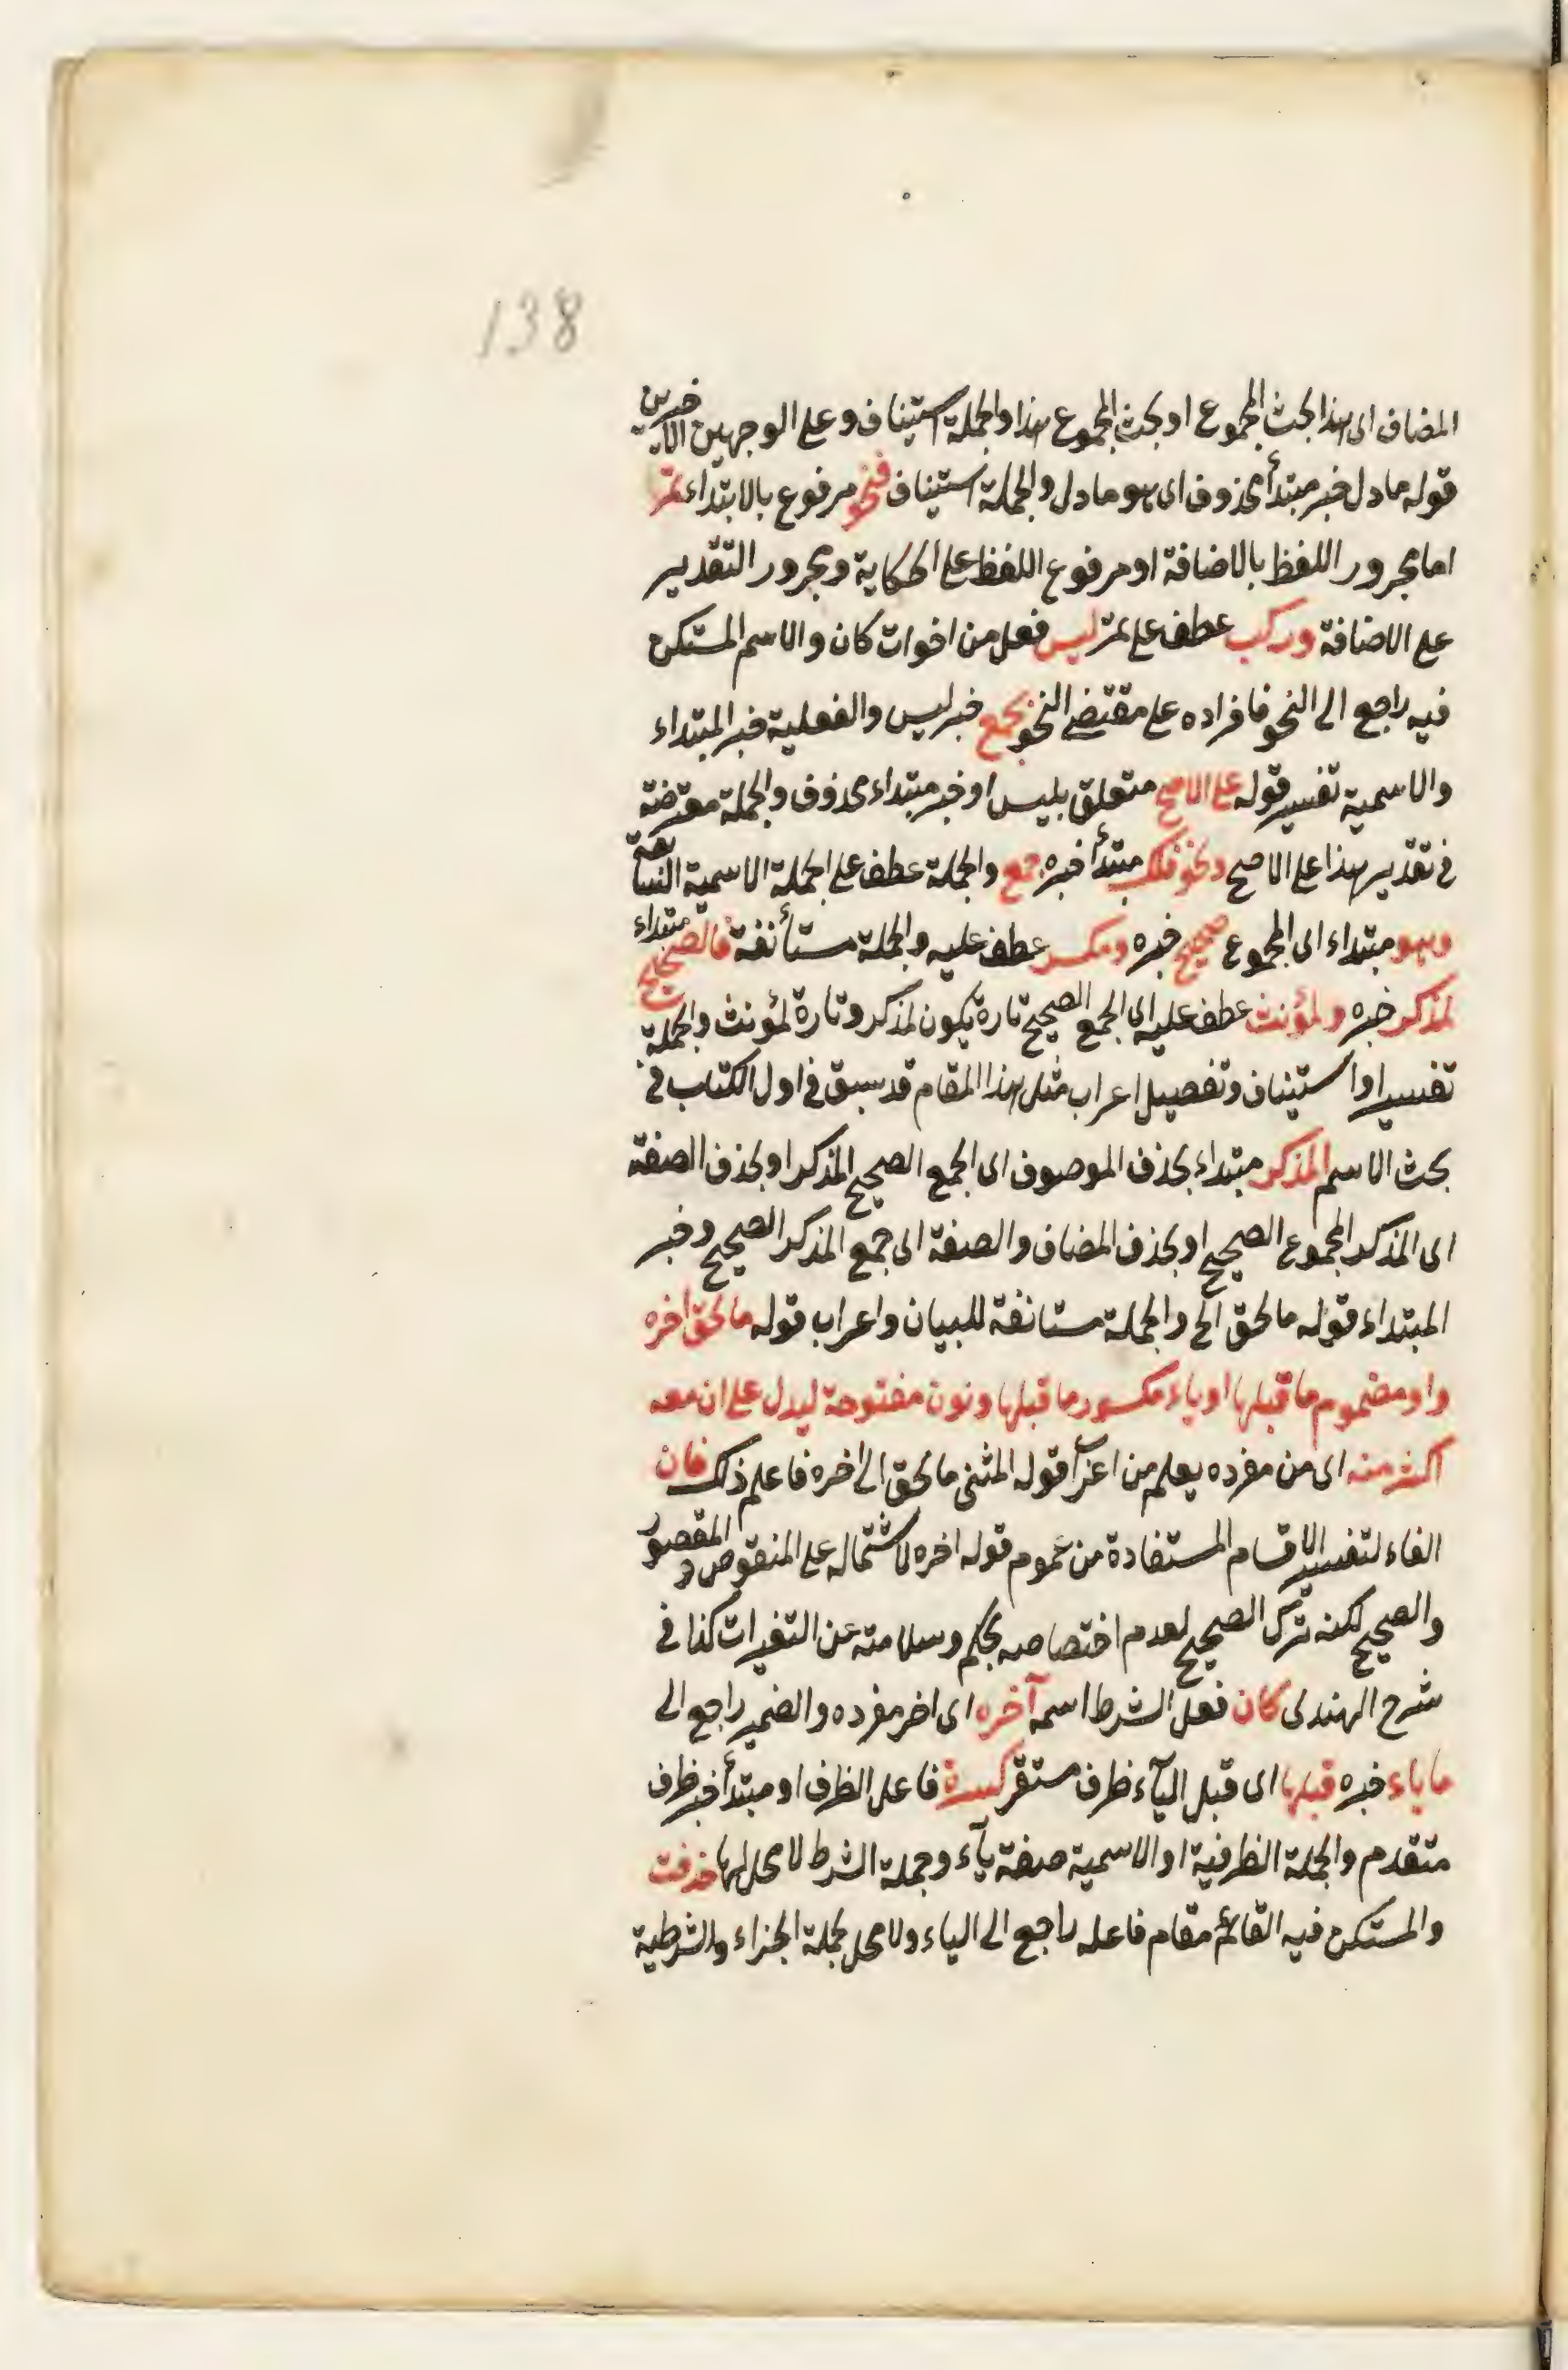 138
المضاف اى هذا بحث المجموع او بحث المجموع هذا والجملة استيناف وعلى الوجهين الاخيرين
قوله ما دل خبر مبتدأ محذوف اى هو ما دل والجملة استيناف فنحو مرفوع بالابتداء تمر
اما مجرور اللفظ بالاضافة او مرفوع اللفظ على الحكاية ومجرور التقدير
على الاضافة وركب عطف على تمر ليس فعل من اخوات كان والاسم المستكن
فيه راجع الى النحو فافراده على مقتضى النحو بجمع خبر ليس والفعلية خبر المبتداء
والاسمية تفسير قوله على الاصح متعلق بليس او خبر مبتداء محذوف والجملة معترضة
فى تقدير هذا على الاصح ونحو فلك مبتدأ خبره جمع والجملة عطف على الجملة الاسمية السابقة
وهو مبتداء اى المجموع صحيح خبره ومكسر عطف عليه والجملة مستأنفة فالصحيح مبتداء
لمذكر خبره ولمؤنث عطف عليه اى الجمع الصحيح تارة يكون لمذكر وتارة لمؤنث والجملة
تفسير او استيناف وتفصيل اعراب مثل هذا المقام قد سبق فى اول الكتاب فى
بحث الاسم المذكر مبتداء بحذف الموصوف اى الجمع الصحيح المذكر او بحذف الصفة
اى المذكر المجموع الصحيح او بحذف المضاف والصفة اى جمع المذكر الصحيح وخبر
المبتداء قوله ما لحق الخ والجملة مستانفة للبيان واعراب قوله ما لحق اخره
واو مضموم ما قبلها او ياء مكسور ما قبلها ونون مفتوحة ليدل على ان معه
اكثر منه اى من مفرده يعلم من اعراب قوله المثنى ما لحق الى اخره فاعلم ذلك فان
الفاء لتفسير الاقسام المستفادة من عموم قوله اخره لاشتماله على المنقوص والمقصور
والصحيح لكنه ترك الصحيح لعدم اختصاصه بحكم وسلامته عن التغيرات كذا فى
شرح الهندى كان فعل الشرط اسمه آخره اى اخر مفرده والضمير راجع الى
ما ياء خبره قبلها اى قبل اليآء ظرف مستقر كسرة فاعل الظرف او مبتدأ خبر ظرف
متقدم والجملة الظرفية او الاسمية صفة يآء وجملة الشرط لا محل لها حذفت
والمستكن فيه القائم مقام فاعله راجع الى الياء ولا محل لجملة الجزاء والشرطية